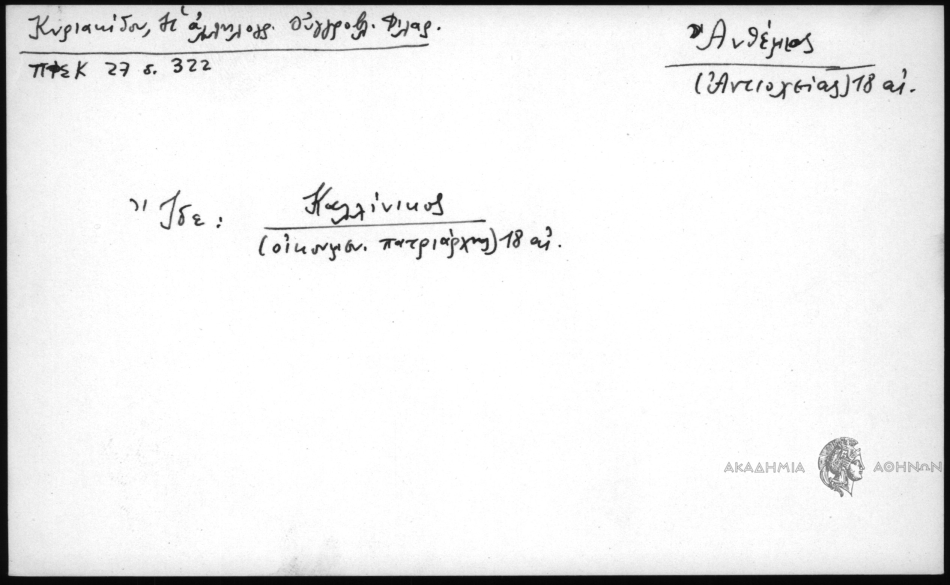 Κυριακίδου, Ἡ ἀλληλογρ. Οὐγγροβλ. Φιλαρ.
ΠΦΣΚ 27 σ. 322
Ἄνθέμιος
(Ἀντιοχείας) 18 αἰ.
Ἴδε: Καλλίνικος
(οἰκουμεν. πατριάρχης) 18 αἰ.
ΑΚΑΔΗΜΙΑ ΑΘΗΝΩΝ